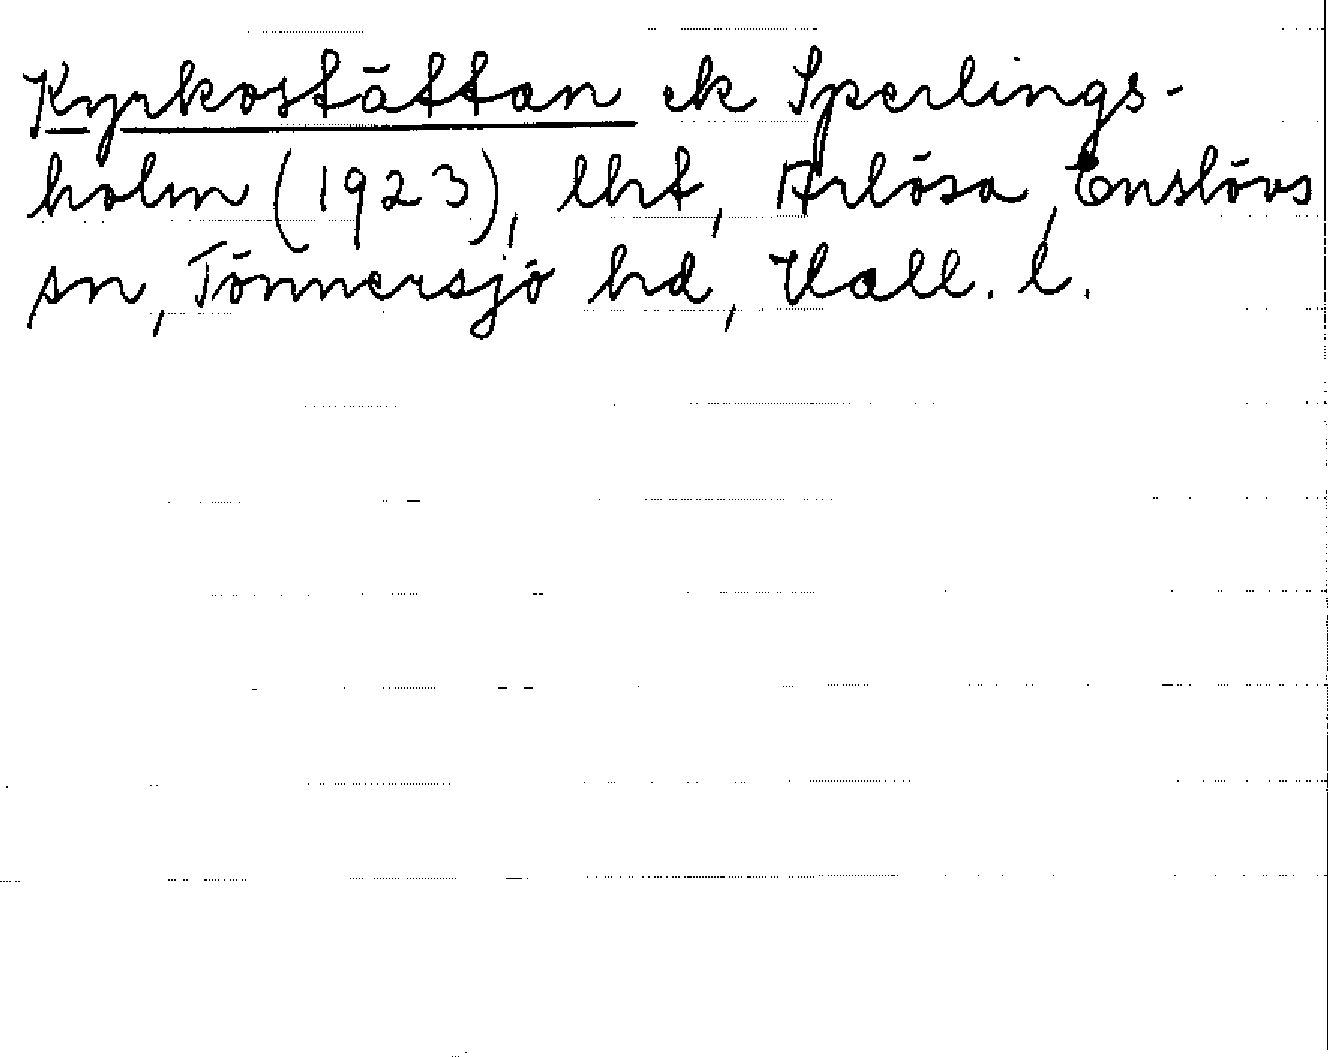 Kyrkostättan ek Sperlings-
holm (1923), lht, Årlösa, Enslövs
sn, Tönnersjö hd, Hall. l.